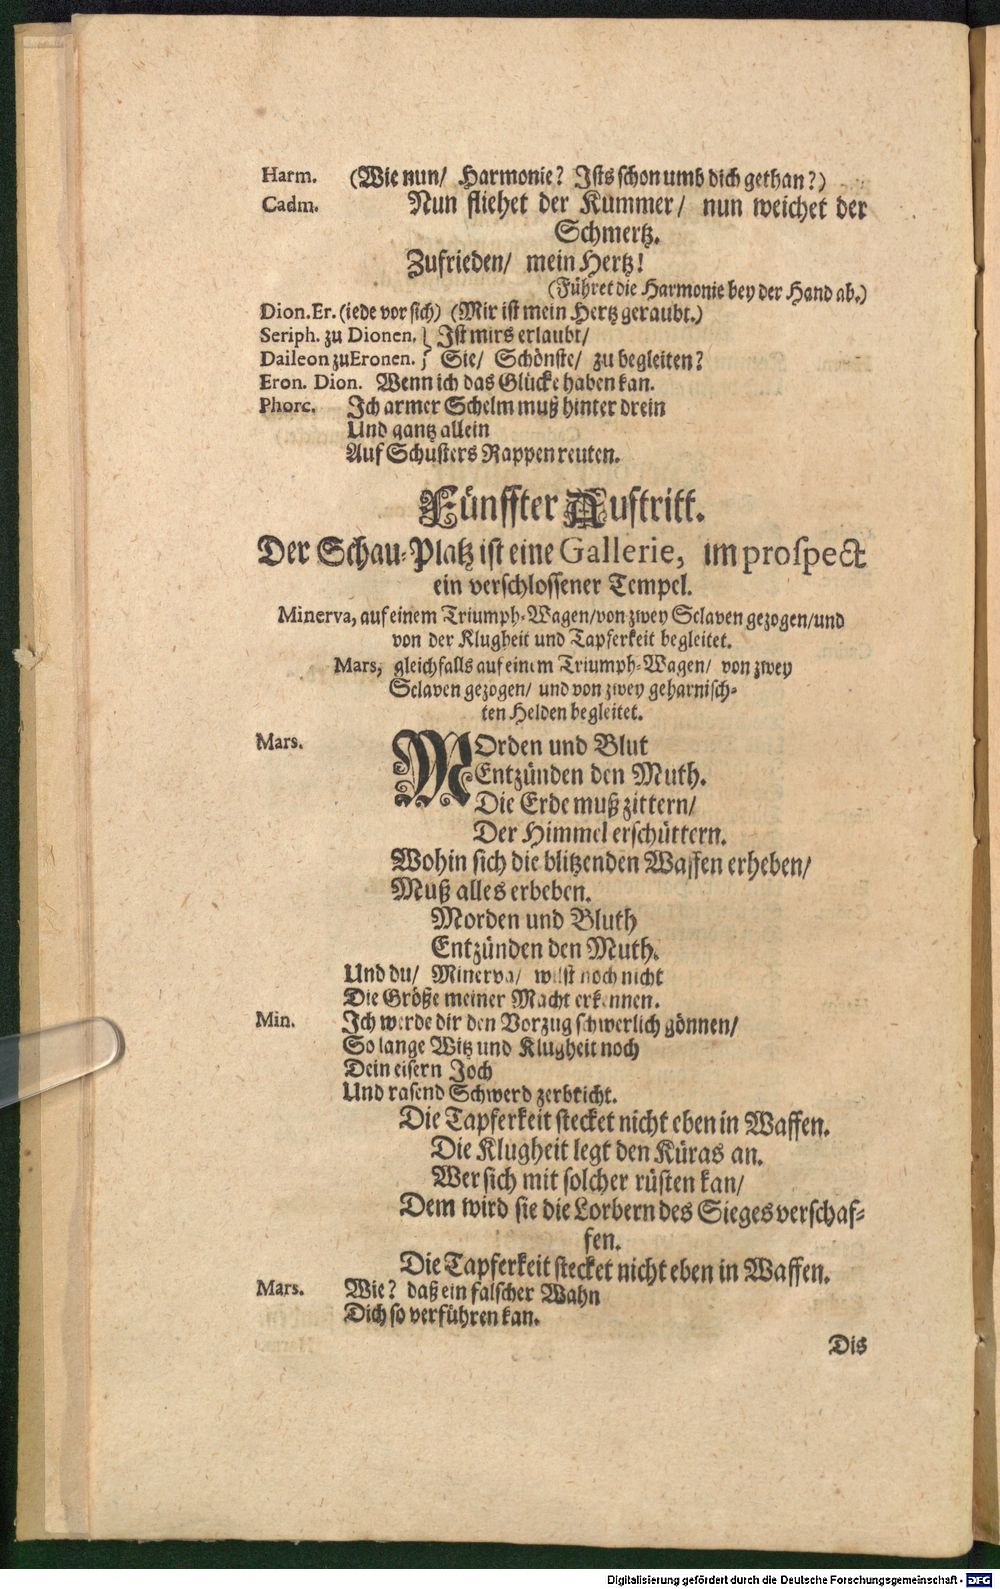 Harm. (Wie nun/ Harmonie? Ists schon umb dich gethan?)
Cadm. Nun fliehet der Kummer/ nun weichet der
Schmertz.
Zufrieden/ mein Hertz!
(Führet die Harmonie bey der Hand ab.)
Dion. Er. (iede vor sich) (Mir ist mein Hertz geraubt.)
Seriph. zu Dionen. } Ist mirs erlaubt/
Daileon zu Eronen. } Sie/ Schönste/ zu begleiten?
Eron. Dion. Wenn ich das Glücke haben kan.
Phorc. Ich armer Schelm muß hinter drein
Und gantz allein
Auf Schusters Rappen reuten.
Fünffter Austritt.
Der Schau-Platz ist eine Gallerie, im prospect
ein verschlossener Tempel.
Minerva, auf einem Triumph-Wagen/von zwey Sclaven gezogen/und
von der Klugheit und Tapferkeit begleitet.
Mars, gleichfalls auf einem Triumph-Wagen/ von zwey
Sclaven gezogen/ und von zwey geharnisch-
ten Helden begleitet.
Mars. MOrden und Blut
Entzünden den Muth.
Die Erde muß zittern/
Der Himmel erschüttern.
Wohin sich die blitzenden Waffen erheben/
Muß alles erbeben.
Morden und Bluth
Entzünden den Muth.
Und du/ Minerva/ wilst noch nicht
Die Größe meiner Macht erkennen.
Min. Ich werde dir den Vorzug schwerlich gönnen/
So lange Witz und Klugheit noch
Dein eisern Joch
Und rasend Schwerd zerbricht.
Die Tapferkeit stecket nicht eben in Waffen.
Die Klugheit legt den Küras an.
Wer sich mit solcher rüsten kan/
Dem wird sie die Lorbern des Sieges verschaf-
fen.
Die Tapferkeit stecket nicht eben in Waffen.
Mars. Wie? daß ein falscher Wahn
Dich so verführen kan.
Dis
Digitalisierung gefördert durch die Deutsche Forschungsgemeinschaft - DFG